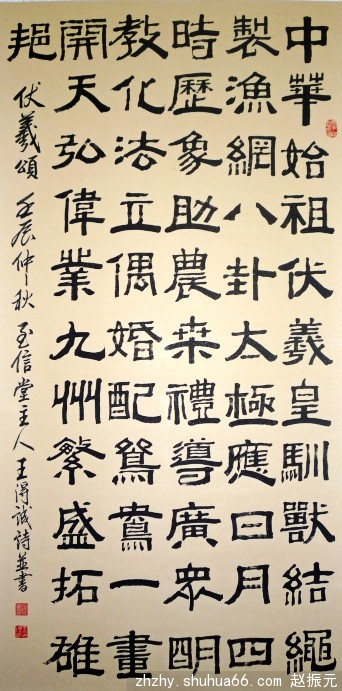 中華始祖伏羲皇馴獸結繩
製漁網八卦太極應日月四
時歷象助農桒禮導廣眾明
教化法立偶婚配鴛鴦一畫
開天弘偉業九州繁盛拓雄
伏羲頌 壬辰仲秋 至信堂主人 王得誠詩並書
zhzhy.shuhua66.com 赵振元